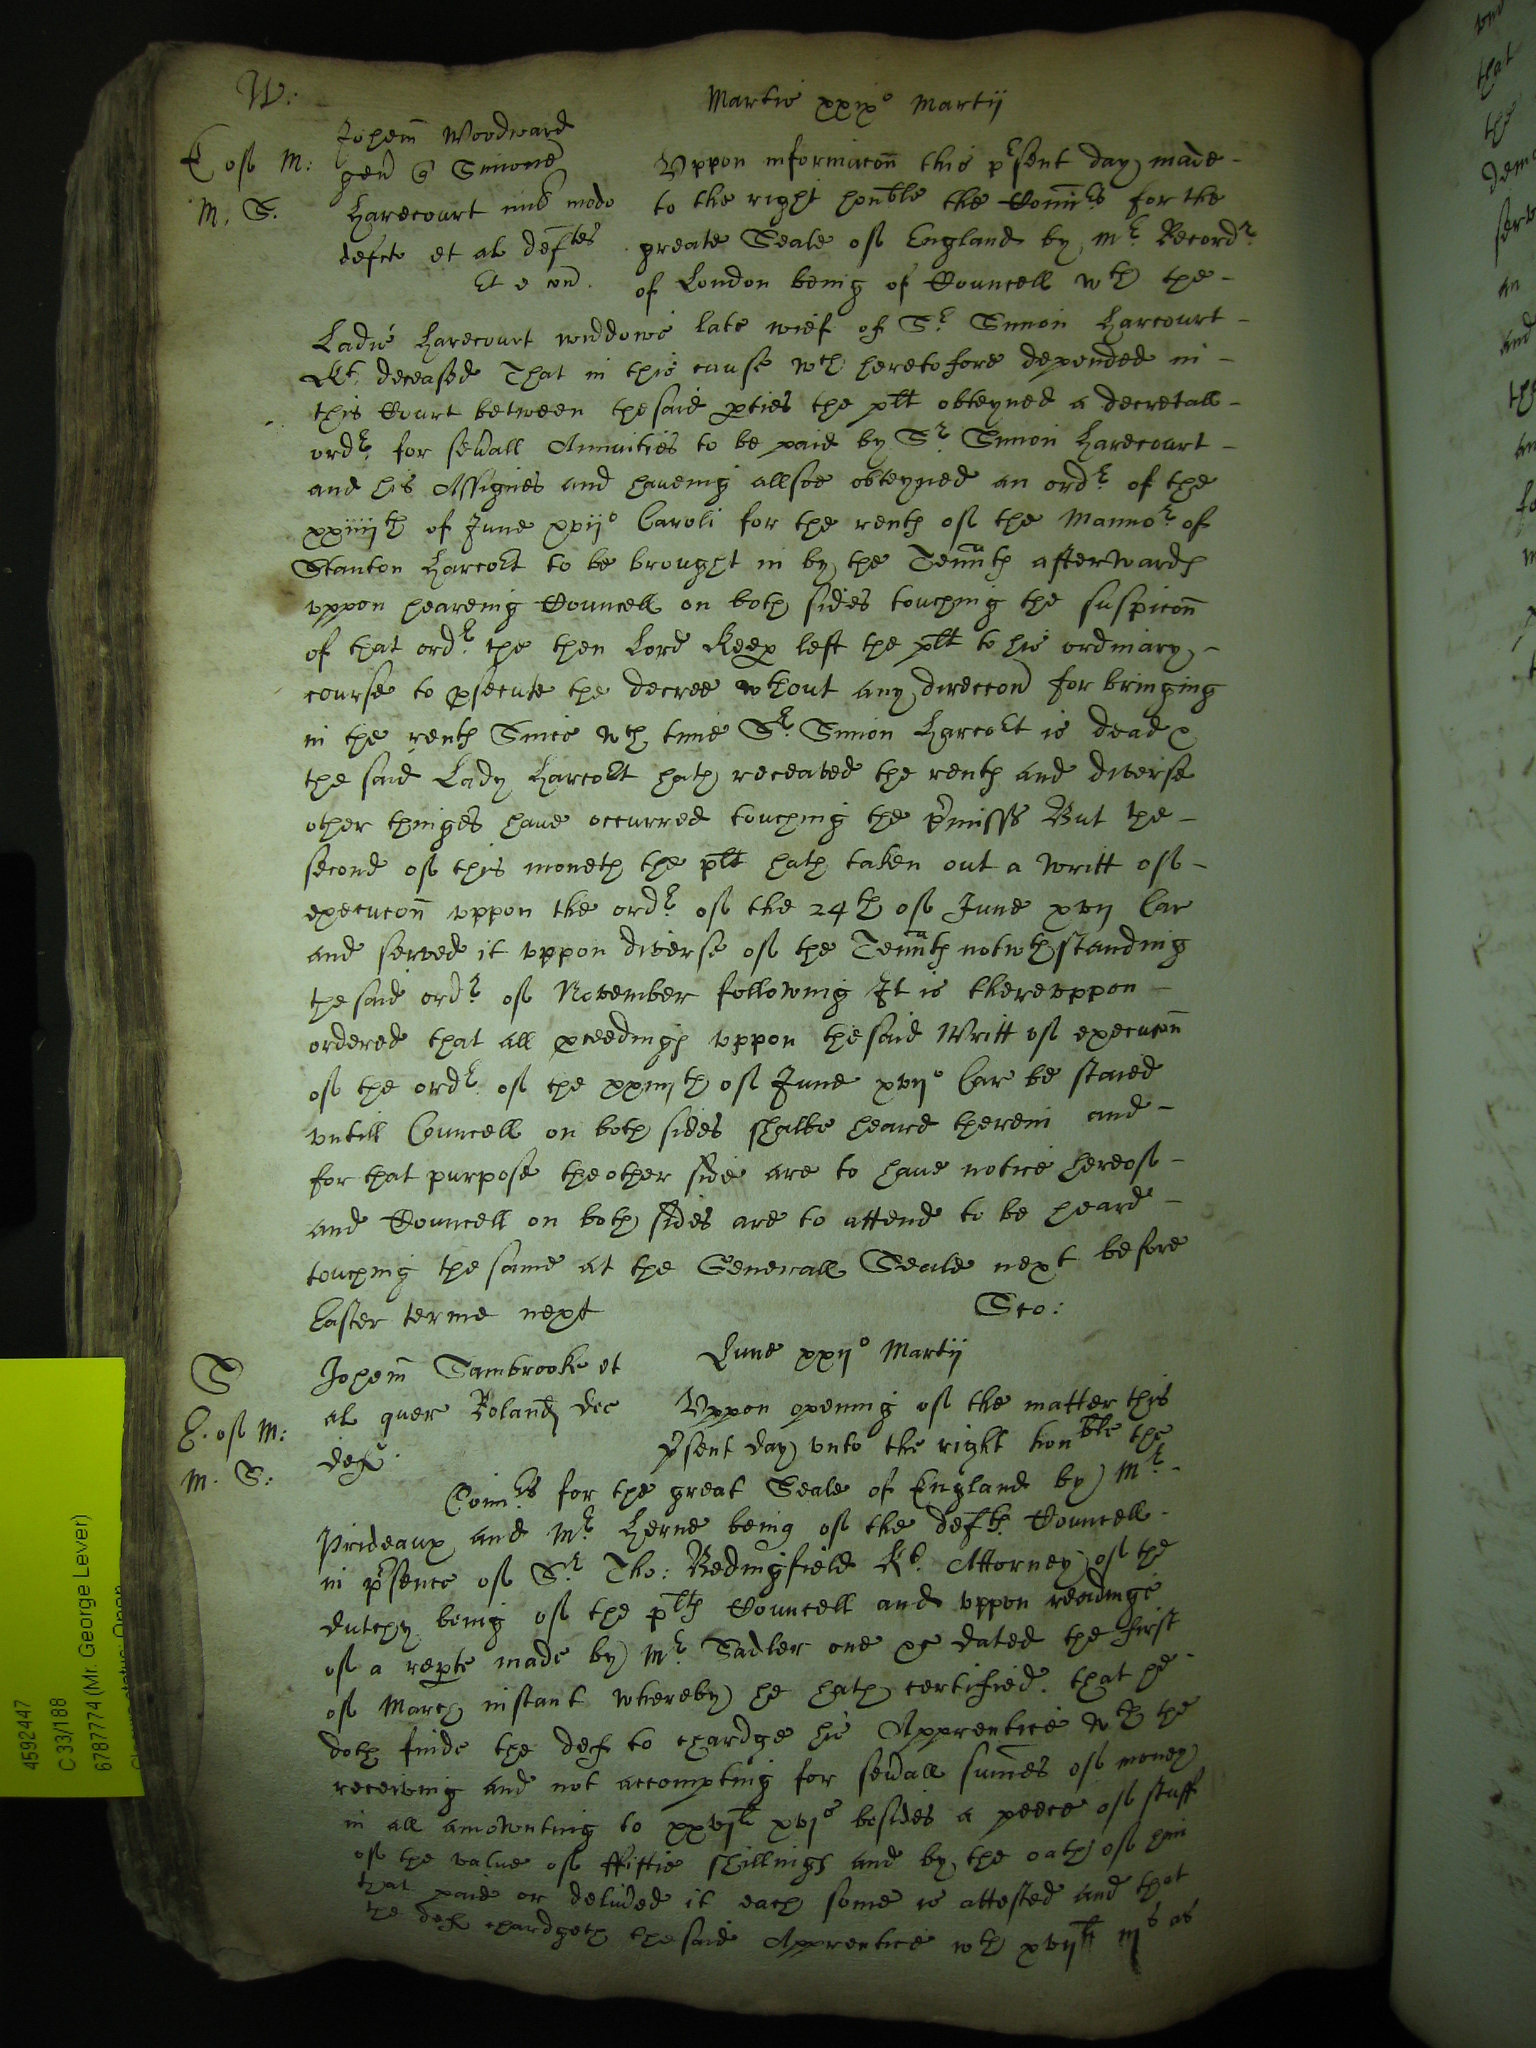 W:
Martis xxix° Martij
E of M:
M. S.
Johem Woodward
gen v Simone
Harecourt mil modo
defct et al deftes
Et e con.
Vppon informacon this pr̃sent day made -
to the right honble the Comrs for the
greate Seale of England by Mr Recordr
of London being of Councell wth the -
Ladie Harecourt widdowe late wief of Sr Simon Harcourt -
Kt. deceased That in this cause wch heretofore depended in -
this Court betweene the said pties the plt obteyned a decretall -
ordr for seūall Annuities to be paid by Sr Simon Harecourt -
and his Assignes and haveing allsoe obteyned an ordr of the
xxiiijth of June xvij° Caroli for the rents of the Mannor of
Stanton Harcort to be brought in by the Tenñts afterwards
vppon heareing Councell on both sides touching the suspicon
of that ordr the then Lord Keep left the plt to his ordinary -
course to psecute the decree wthout any direccon for bringing
in the rents Since wch time Sr Simon Harcort is dead &
the said Lady Harcort hath receaved the rents and diverse
other thinges haue occurred touching the p̃misss But the -
second of this moneth the plt hath taken out a Writt of -
execucon vppon the ordr of the 24th of June xvij Car
and served it vppon diverse of the Tenñts notwthstanding
the said ordr of November following It is therevppon -
ordered that all pceedings vppon the said Writt of execucon
of the ordr of the xxiiijth of June xvij° Car be staied
vntill Councell on both sides shalbe heard therein and -
for that purpose the other side are to haue notice hereof -
and Councell on both sides are to attend to be heard -
touching the same at the Generall Seale next before
Easter terme next
Sco:
Lune xxij° Martij
S
E. of M:
M. S:
Johem Sambrooke et
al quer Roland dec
def.
Vppon opening of the matter this
p̃sent day vnto the right honble the
Comrs for the great Seale of England by Mr -
Prideaux and Mr Herne being of the defts Councell -
in pr̃sence of Sr Tho: Bedingfield Kt. Attorney of the
dutchy being of the plts Councell and vppon readinge
of a reporte made by Mr Sadler one &c dated the first
of March instant whereby he hath certified. that he -
doth finde the def to chardge his Apprentice wth the
receiving and not accompting for seūall summes of money
in all amownting to xxvjli xvjs besides a peece of stuff
of the value of ffiftie shillings and by the oath of him
that paid or deliūed it each some is attested and that
the def chardgeth the said Apprentice wth xvijli iijs as
4592447
C 33/188
6787774 (Mr. George Lever)